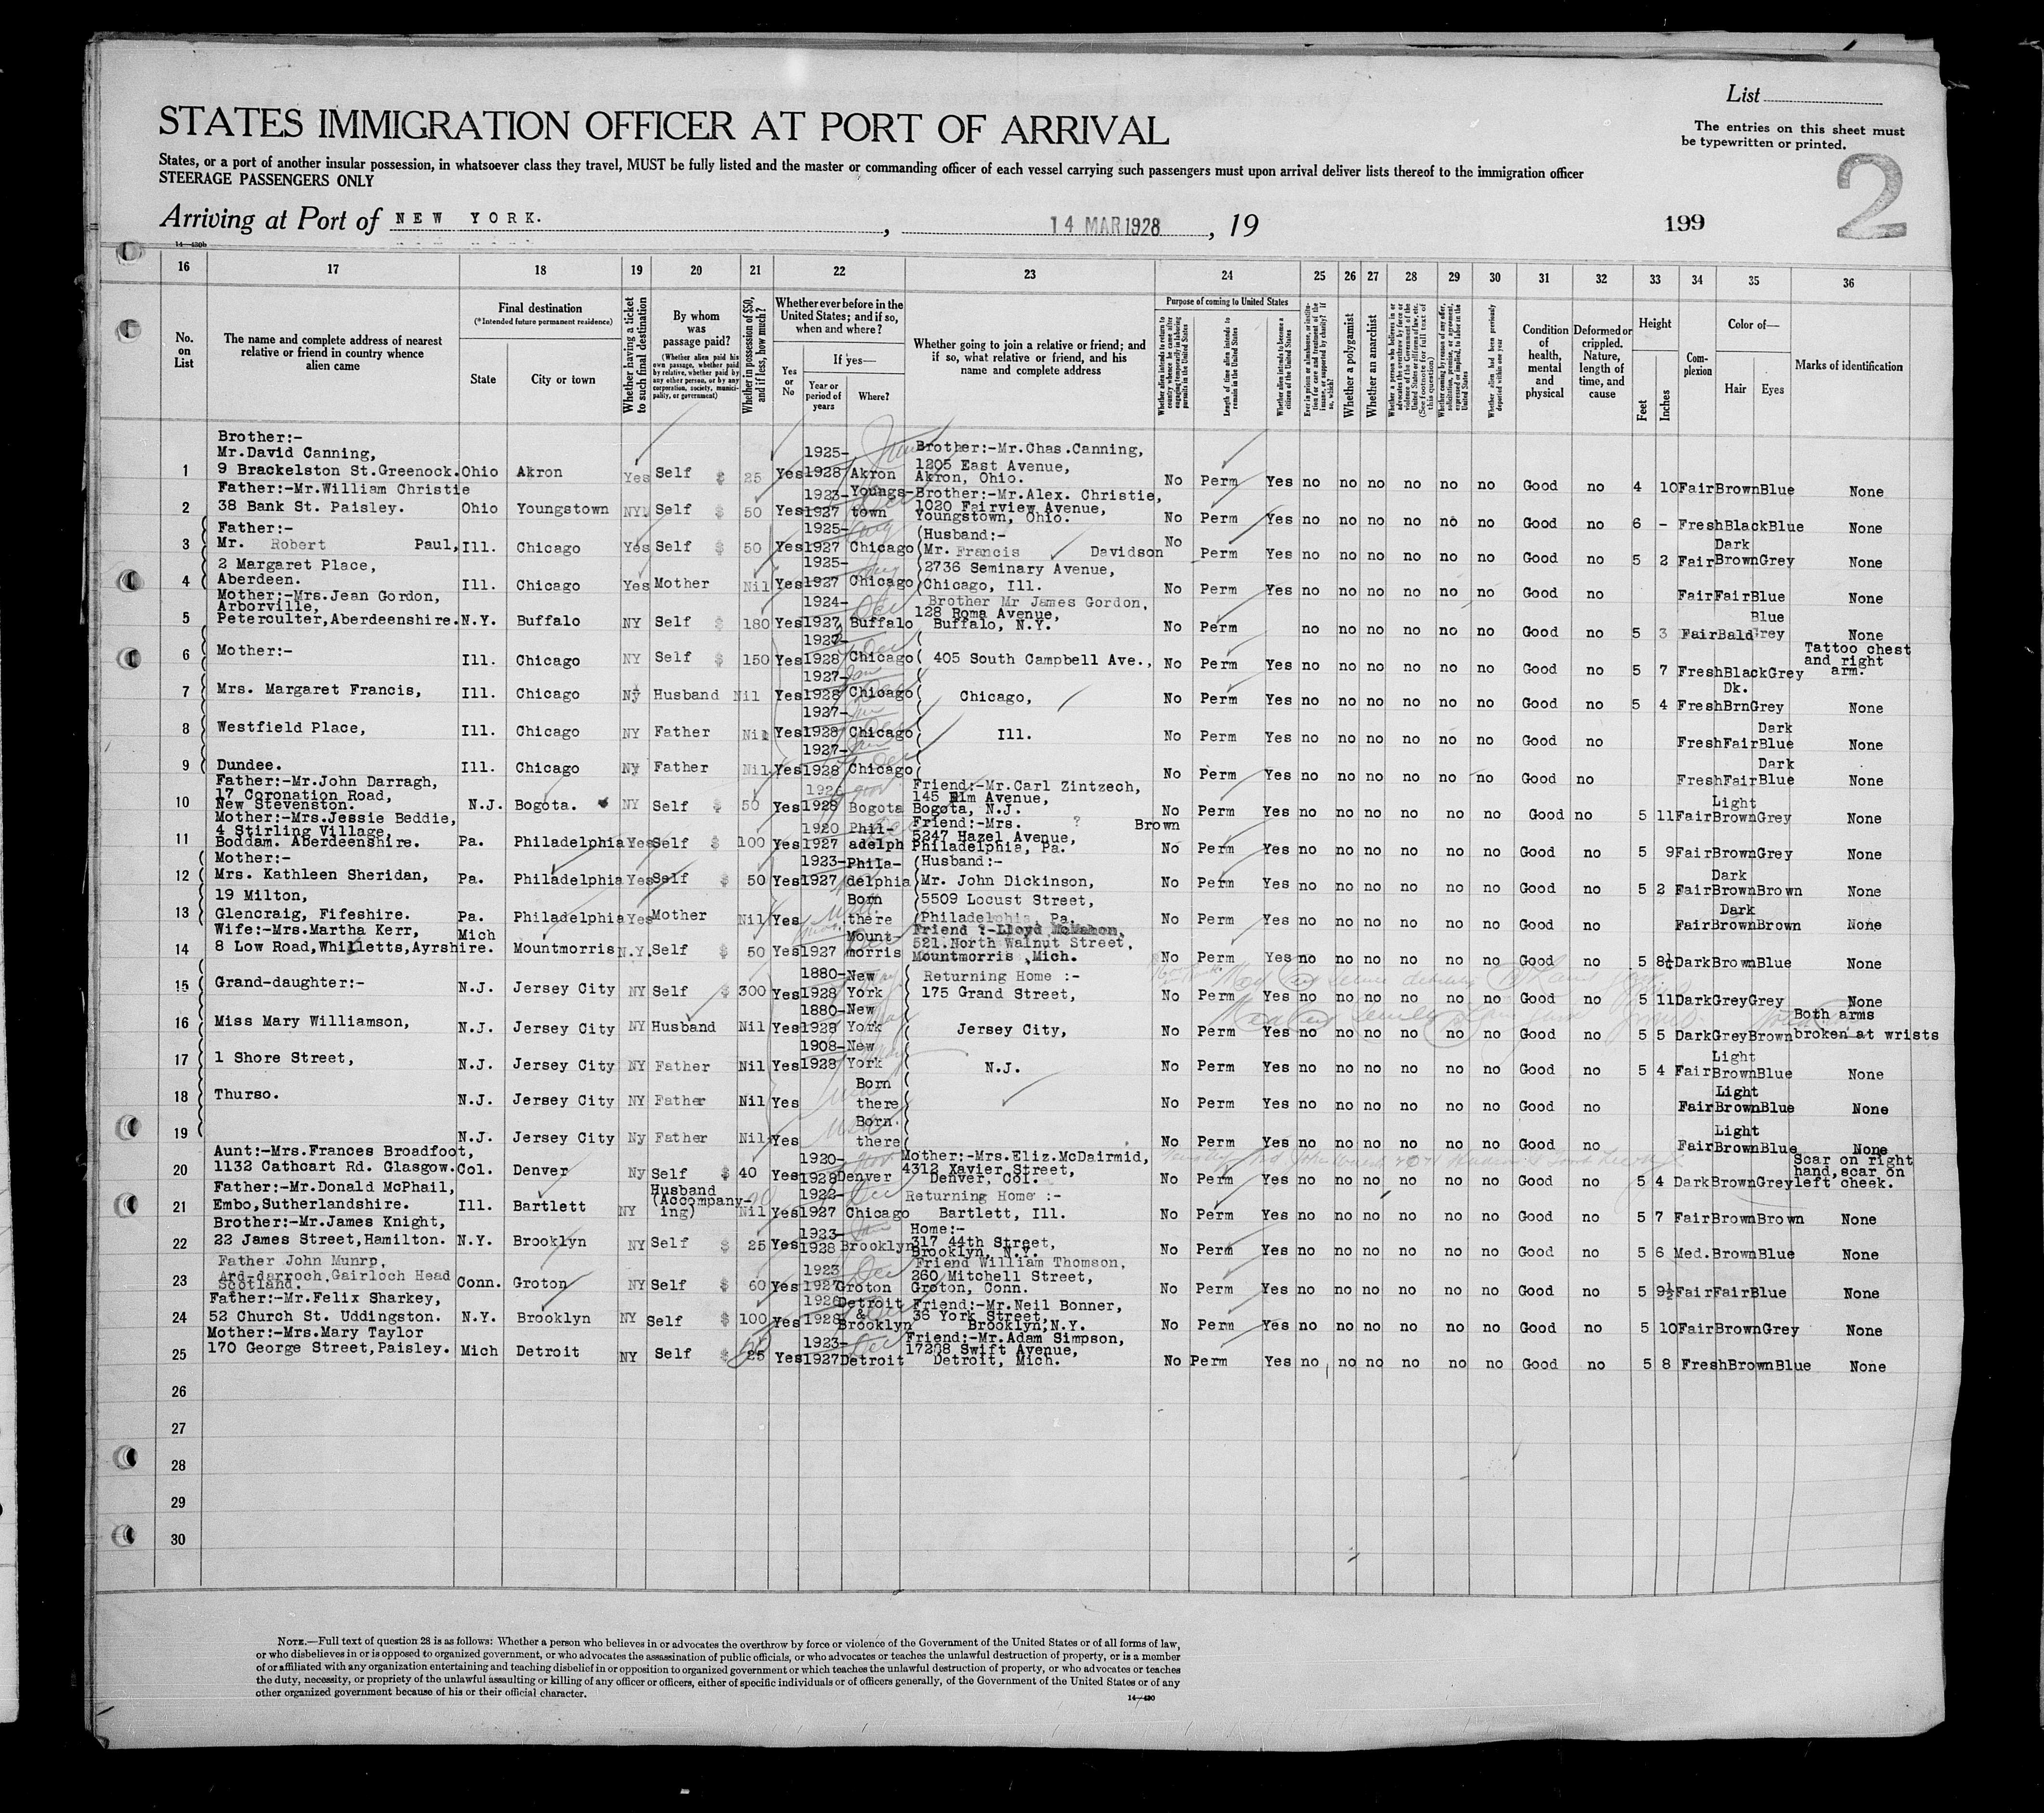 List
STATES IMMIGRATION OFFICER AT PORT OF ARRIVAL
The entries on this sheet must
be typewritten or printed.
States, or a port of another insular possession, in whatsoever class they travel, MUST be fully listed and the master or commanding officer of each vessel carrying such passengers must upon arrival deliver lists thereof to the immigration officer
STEERAGE PASSENGERS ONLY
2
Arriving at Port of NEW YORK. , 14 MAR 1928 , 19
199
14—430b
16 17 18 19 20 21 22 23 24 25 26 27 28 29 30 31 32 33 34 35 36
No. on List
The name and complete address of nearest relative or friend in country whence alien came
Final destination
(*Intended future permanent residence)
State
City or town
Whether having a ticket to such final destination
By whom was passage paid?
(Whether alien paid his own passage, whether paid by relative, whether paid by any other person, or by any corporation, society, municipality, or government)
Whether in possession of $50, and if less, how much?
Whether ever before in the United States; and if so, when and where?
Yes or No
If yes—
Year or period of years
Where?
Whether going to join a relative or friend; and if so, what relative or friend, and his name and complete address
Purpose of coming to United States
Whether alien intends to return to country whence he came after engaging temporarily in laboring pursuits in the United States
Length of time alien intends to remain in the United States
Whether alien intends to become a citizen of the United States
Ever in prison or almshouse, or institution for care and treatment of the insane, or supported by charity? If so, which?
Whether a polygamist
Whether an anarchist
Whether coming by reason of any offer, solicitation, promise, or agreement, expressed or implied, to labor in the United States
Whether alien had been previously deported within one year
Condition of health, mental and physical
Deformed or crippled. Nature, length of time, and cause
Height
Feet
Inches
Complexion
Color of—
Hair
Eyes
Marks of identification
1 Brother:- Mr.David Canning, 9 Brackelston St.Greenock. Ohio Akron Yes Self $ 25 Yes 1925-1928 Akron Brother:-Mr.Chas.Canning, 1205 East Avenue, Akron, Ohio. No Perm Yes no no no no no no Good no 4 10 Fair Brown Blue None
2 Father:-Mr.William Christie 38 Bank St. Paisley. Ohio Youngstown NY. Self $ 50 Yes 1923-1927 Youngs-town Brother:-Mr.Alex. Christie, 1020 Fairview Avenue, Youngstown, Ohio. No Perm Yes no no no no no no Good no 6 - Fresh Black Blue None
3 Father:- Mr. Robert Paul, Ill. Chicago Yes Self $ 50 Yes 1925-1927 Chicago (Husband:- Mr. Francis Davidson No Perm Yes no no no no no no Good no 5 2 Fair Dark Brown Grey None
4 2 Margaret Place, Aberdeen. Ill. Chicago Yes Mother Nil Yes 1925-1927 Chicago 2736 Seminary Avenue, Chicago, Ill. No Perm Yes no no no no no no Good no Fair Fair Blue None
5 Mother:-Mrs.Jean Gordon, Arborville, Peterculter,Aberdeenshire. N.Y. Buffalo NY Self $ 180 Yes 1924-1927 Buffalo Brother Mr James Gordon, 128 Roma Avenue, Buffalo, N.Y. No Perm no no no no no no Good no 5 3 Fair Bald Blue Grey None
6 Mother:- Ill. Chicago NY Self $ 150 Yes 1927-1928 Chicago 405 South Campbell Ave., No Perm Yes no no no no no no Good no 5 7 Fresh Black Grey Tattoo chest and right arm.
7 Mrs. Margaret Francis, Ill. Chicago NY Husband Nil Yes 1927-1928 Chicago Chicago, No Perm Yes no no no no no no Good no 5 4 Fresh Dk. Brn Grey None
8 Westfield Place, Ill. Chicago NY Father Nil Yes 1927-1928 Chicago Ill. No Perm Yes no no no no no no Good no Fresh Fair Dark Blue None
9 Dundee. Ill. Chicago NY Father Nil Yes 1927-1928 Chicago No Perm Yes no no no no no no Good no Fresh Fair Dark Blue None
10 Father:-Mr.John Darragh, 17 Coronation Road, New Stevenston. N.J. Bogota. NY Self $ 50 Yes 1926 1928 Bogota Friend:-Mr.Carl Zintzech, 145 Elm Avenue, Bogota, N.J. No Perm Yes no no no no no no Good no 5 11 Fair Light Brown Grey None
11 Mother:-Mrs.Jessie Beddie, 4 Stirling Village, Boddam. Aberdeenshire. Pa. Philadelphia Yes Self $ 100 Yes 1920 1927 Phil-adelph Friend:-Mrs. ? Brown 5247 Hazel Avenue, Philadelphia, Pa. No Perm Yes no no no no no no Good no 5 9 Fair Brown Grey None
12 Mother:- Mrs. Kathleen Sheridan, Pa. Philadelphia Yes Self $ 50 Yes 1923-1927 Phila-delphia (Husband:- Mr. John Dickinson, No Perm Yes no no no no no no Good no 5 2 Fair Dark Brown Brown None
13 19 Milton, Glencraig, Fifeshire. Pa. Philadelphia Yes Mother Nil Yes Born there 5509 Locust Street, Philadelphia, Pa. No Perm Yes no no no no no no Good no Fair Dark Brown Brown None
14 Wife:-Mrs.Martha Kerr, 8 Low Road,Whilletts,Ayrshire. Mich Mountmorris N.Y. Self $ 50 Yes 1927 Mount-morris Friend :-Lloyd McMahon, 521.North Walnut Street, Mountmorris ,Mich. No Perm Yes no no no no no no Good no 5 8½ Dark Brown Blue None
15 Grand-daughter:- N.J. Jersey City NY Self $ 300 Yes 1880-1928 New York Returning Home :- 175 Grand Street, No Perm Yes no no no no no no Good no 5 11 Dark Grey Grey None
16 Miss Mary Williamson, N.J. Jersey City NY Husband Nil Yes 1880-1928 New York Jersey City, No Perm Yes no no no no no no Good no 5 5 Dark Grey Brown Both arms broken at wrists
17 1 Shore Street, N.J. Jersey City NY Father Nil Yes 1908-1928 New York N.J. No Perm Yes no no no no no no Good no 5 4 Fair Light Brown Blue None
18 Thurso. N.J. Jersey City NY Father Nil Yes Born there No Perm Yes no no no no no no Good no Fair Light Brown Blue None
19 N.J. Jersey City Ny Father Nil Yes Born. there No Perm Yes no no no no no no Good no Fair Light Brown Blue None
20 Aunt:-Mrs.Frances Broadfoot, 1132 Cathcart Rd. Glasgow. Col. Denver Ny Self $ 40 Yes 1920-1928 Denver Mother:-Mrs.Eliz.McDairmid, 4312 Xavier Street, Denver, Col. No Perm Yes no no no no no no Good no 5 4 Dark Brown Grey Scar on right hand,scar on left cheek.
21 Father:-Mr.Donald McPhail, Embo,Sutherlandshire. Ill. Bartlett NY Husband (Accompany-ing) Nil Yes 1922-1927 Chicago Returning Home :- Bartlett, Ill. No Perm Yes no no no no no no Good no 5 7 Fair Brown Brown None
22 Brother:-Mr.James Knight, 22 James Street,Hamilton. N.Y. Brooklyn NY Self $ 25 Yes 1923-1928 Brooklyn Home:- 317 44th Street, Brooklyn, N.Y. No Perm Yes no no no no no no Good no 5 6 Med. Brown Blue None
23 Father John Munrp, Ard-darroch,Gairloch Head Scotland. Conn. Groton NY Self $ 60 Yes 1923 1927 Groton Friend William Thomson, 260 Mitchell Street, Groton, Conn. No Perm Yes no no no no no no Good no 5 9½ Fair Fair Blue None
24 Father:-Mr.Felix Sharkey, 52 Church St. Uddingston. N.Y. Brooklyn NY Self $ 100 Yes 1926 1928 Detroit & Brooklyn Friend:-Mr.Neil Bonner, 36 York Street, Brooklyn,N.Y. No Perm Yes no no no no no no Good no 5 10 Fair Brown Grey None
25 Mother:-Mrs.Mary Taylor 170 George Street,Paisley. Mich Detroit NY Self $ 25 Yes 1923-1927 Detroit Friend:-Mr.Adam Simpson, 17208 Swift Avenue, Detroit, Mich. No Perm Yes no no no no no no Good no 5 8 Fresh Brown Blue None
26
27
28
29
30
NOTE.—Full text of question 28 is as follows: Whether a person who believes in or advocates the overthrow by force or violence of the Government of the United States or of all forms of law,
or who disbelieves in or is opposed to organized government, or who advocates the assassination of public officials, or who advocates or teaches the unlawful destruction of property, or is a member
of or affiliated with any organization entertaining and teaching disbelief in or opposition to organized government or which teaches the unlawful destruction of property, or who advocates or teaches
the duty, necessity, or propriety of the unlawful assaulting or killing of any officer or officers, either of specific individuals or of officers generally, of the Government of the United States or of any
other organized government because of his or their official character.
14—430